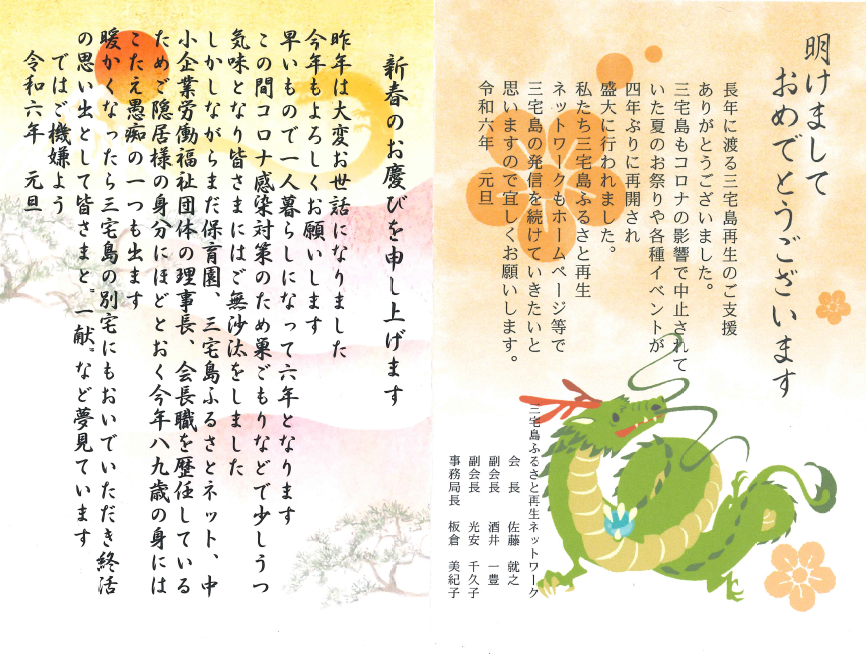 明けまして
おめでとうございます
長年に渡る三宅島再生のご支援
ありがとうございました。
三宅島もコロナの影響で中止されて
いた夏のお祭りや各種イベントが
四年ぶりに再開され
盛大に行われました。
私たち三宅島ふるさと再生
ネットワークもホームページ等で
三宅島の発信を続けていきたいと
思いますので宜しくお願いします。
令和六年 元旦
三宅島ふるさと再生ネットワーク
会 長 佐藤 就之
副会長 酒井 一豊
副会長 光安 千久子
事務局長 板倉 美紀子
新春のお慶びを申し上げます
昨年は大変お世話になりました
今年もよろしくお願いします
早いもので一人暮らしになって六年となります
この間コロナ感染対策のため巣ごもりなどで少しうつ
気味となり皆さまにはご無沙汰をしました
しかしながらまだ保育園、三宅島ふるさとネット、中
小企業労働福祉団体の理事長、会長職を歴任している
ためご隠居様の身分にほどとおく今年八九歳の身には
こたえ愚痴の一つも出ます
暖かくなったら三宅島の別宅にもおいでいただき終活
の思い出として皆さまと〝一献〟など夢見ています
ではご機嫌よう
令和六年 元旦